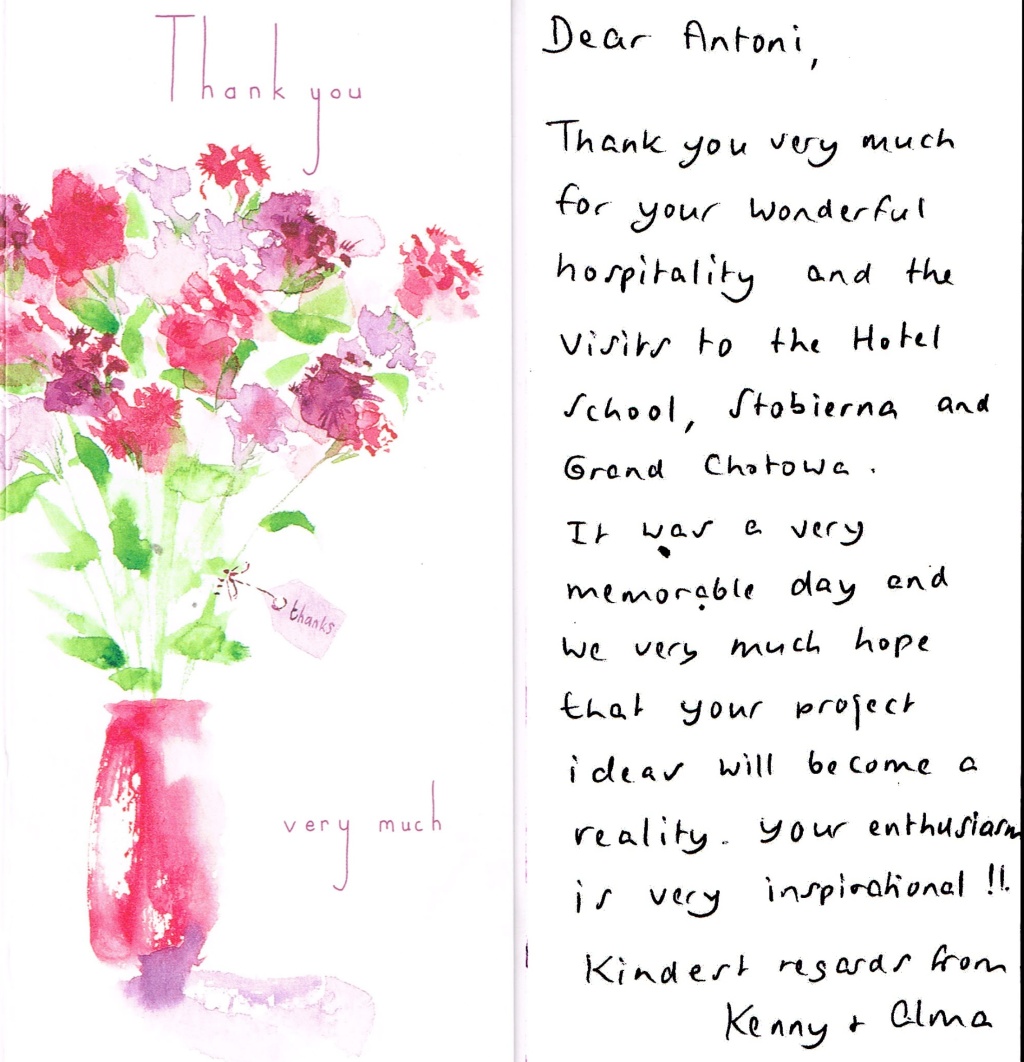 Thank you
thanks
very much
Dear Antoni,
Thank you very much
for your wonderful
hospitality and the
visits to the Hotel
School, Stobierna and
Grand Chotowa.
It was a very
memorable day and
we very much hope
that your project
ideas will become a
reality. Your enthusiasm
is very inspirational !!
Kindest regards from
Kenny + Alma